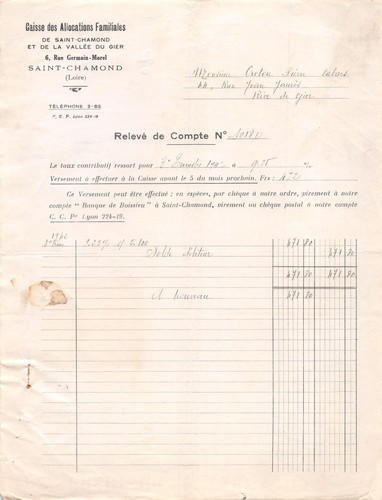 Caisse des Allocations Familiales
DE SAINT-CHAMOND
ET DE LA VALLÉE DU GIER
6, Rue Germain-Morel
SAINT-CHAMOND
(Loire)
TÉLÉPHONE 3-85
C. C. P. Lyon 224-19
Monsieur
44, Rue Jean Jaurès
Rive de Gier
Relevé de Compte N°
Le taux contributif ressort pour à %
Versement à effectuer à la Caisse avant le 5 du mois prochain. Frs :
Ce Versement peut être effectué : en espèces, par chèque à notre ordre, virement à notre
compte "Banque de Boissieu" à Saint-Chamond, virement ou chèque postal à notre compte
C. C. P. Lyon 224-19.
471 80
Solde débiteur 471 80
471 80 471 80
A nouveau 471 80